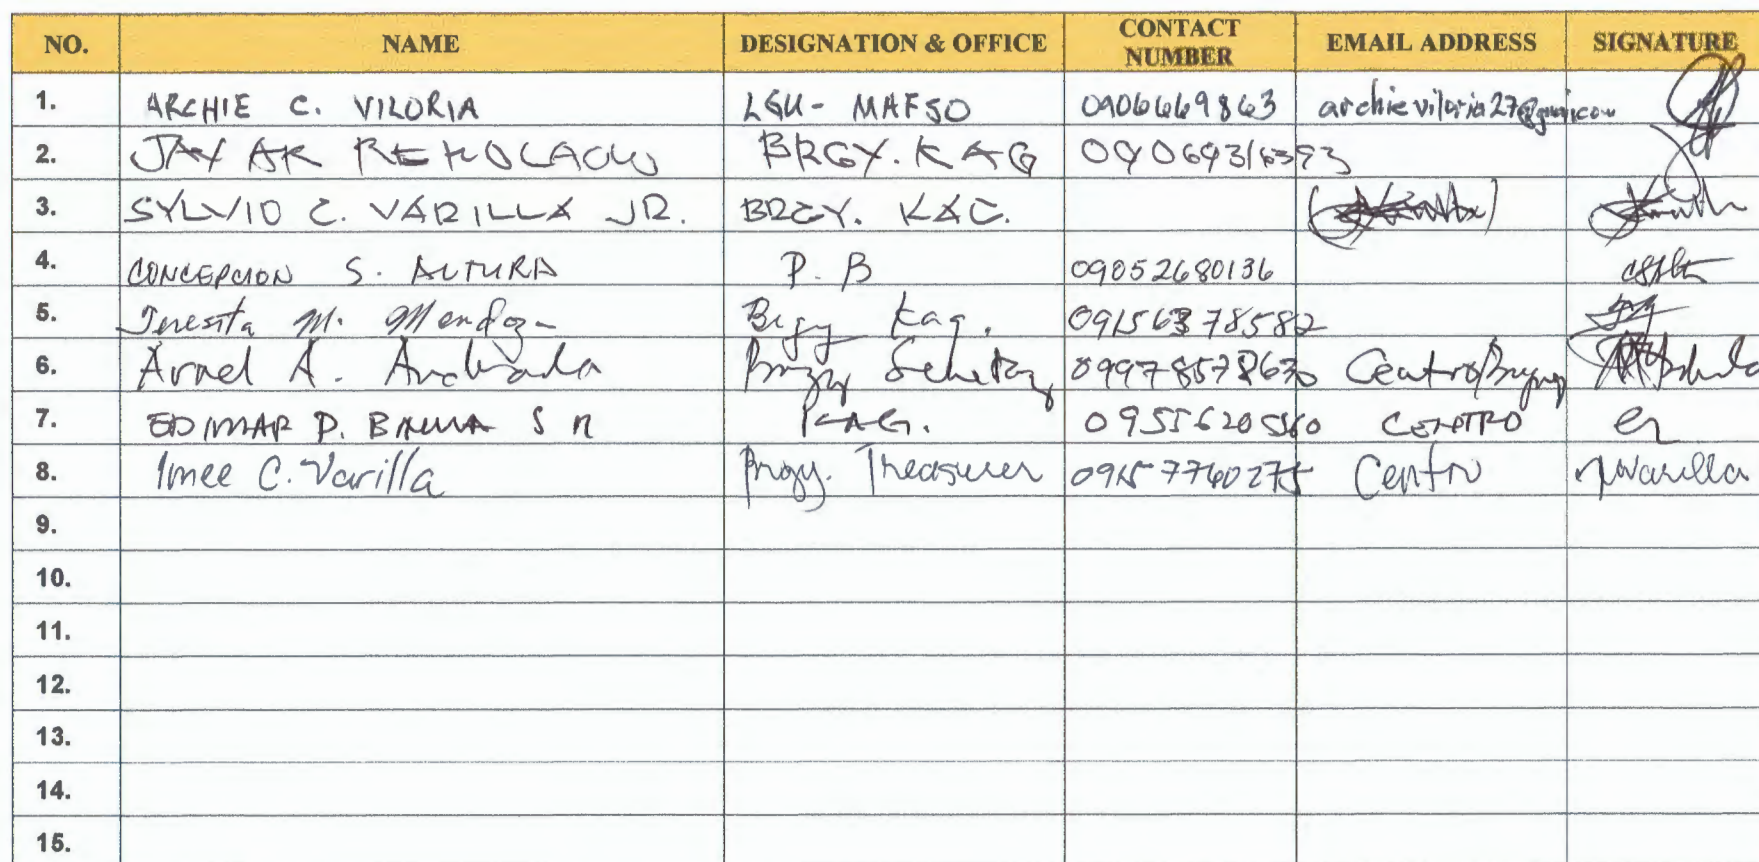 NO. NAME DESIGNATION & OFFICE CONTACT NUMBER EMAIL ADDRESS SIGNATURE
1. ARCHIE C. VILORIA LGU- MAFSO 0906669863 archieviloria27@gmail.com
2. JAY AR BRGY. KAG 09069316393
3. SYLVIO C. VARILLA JR. BRGY. KAG.
4. CONCEPCION S. ALTURA P. B 09052680136
5. Teresita M. Mendoza Brgy Kag. 09156378582
6. Arnel A. Andrada Brgy
7. EDIMAR P. KAG. CENTRO
8. Imee C. Varilla Brgy. Treasurer 09157760275 Centro
9.
10.
11.
12.
13.
14.
15.